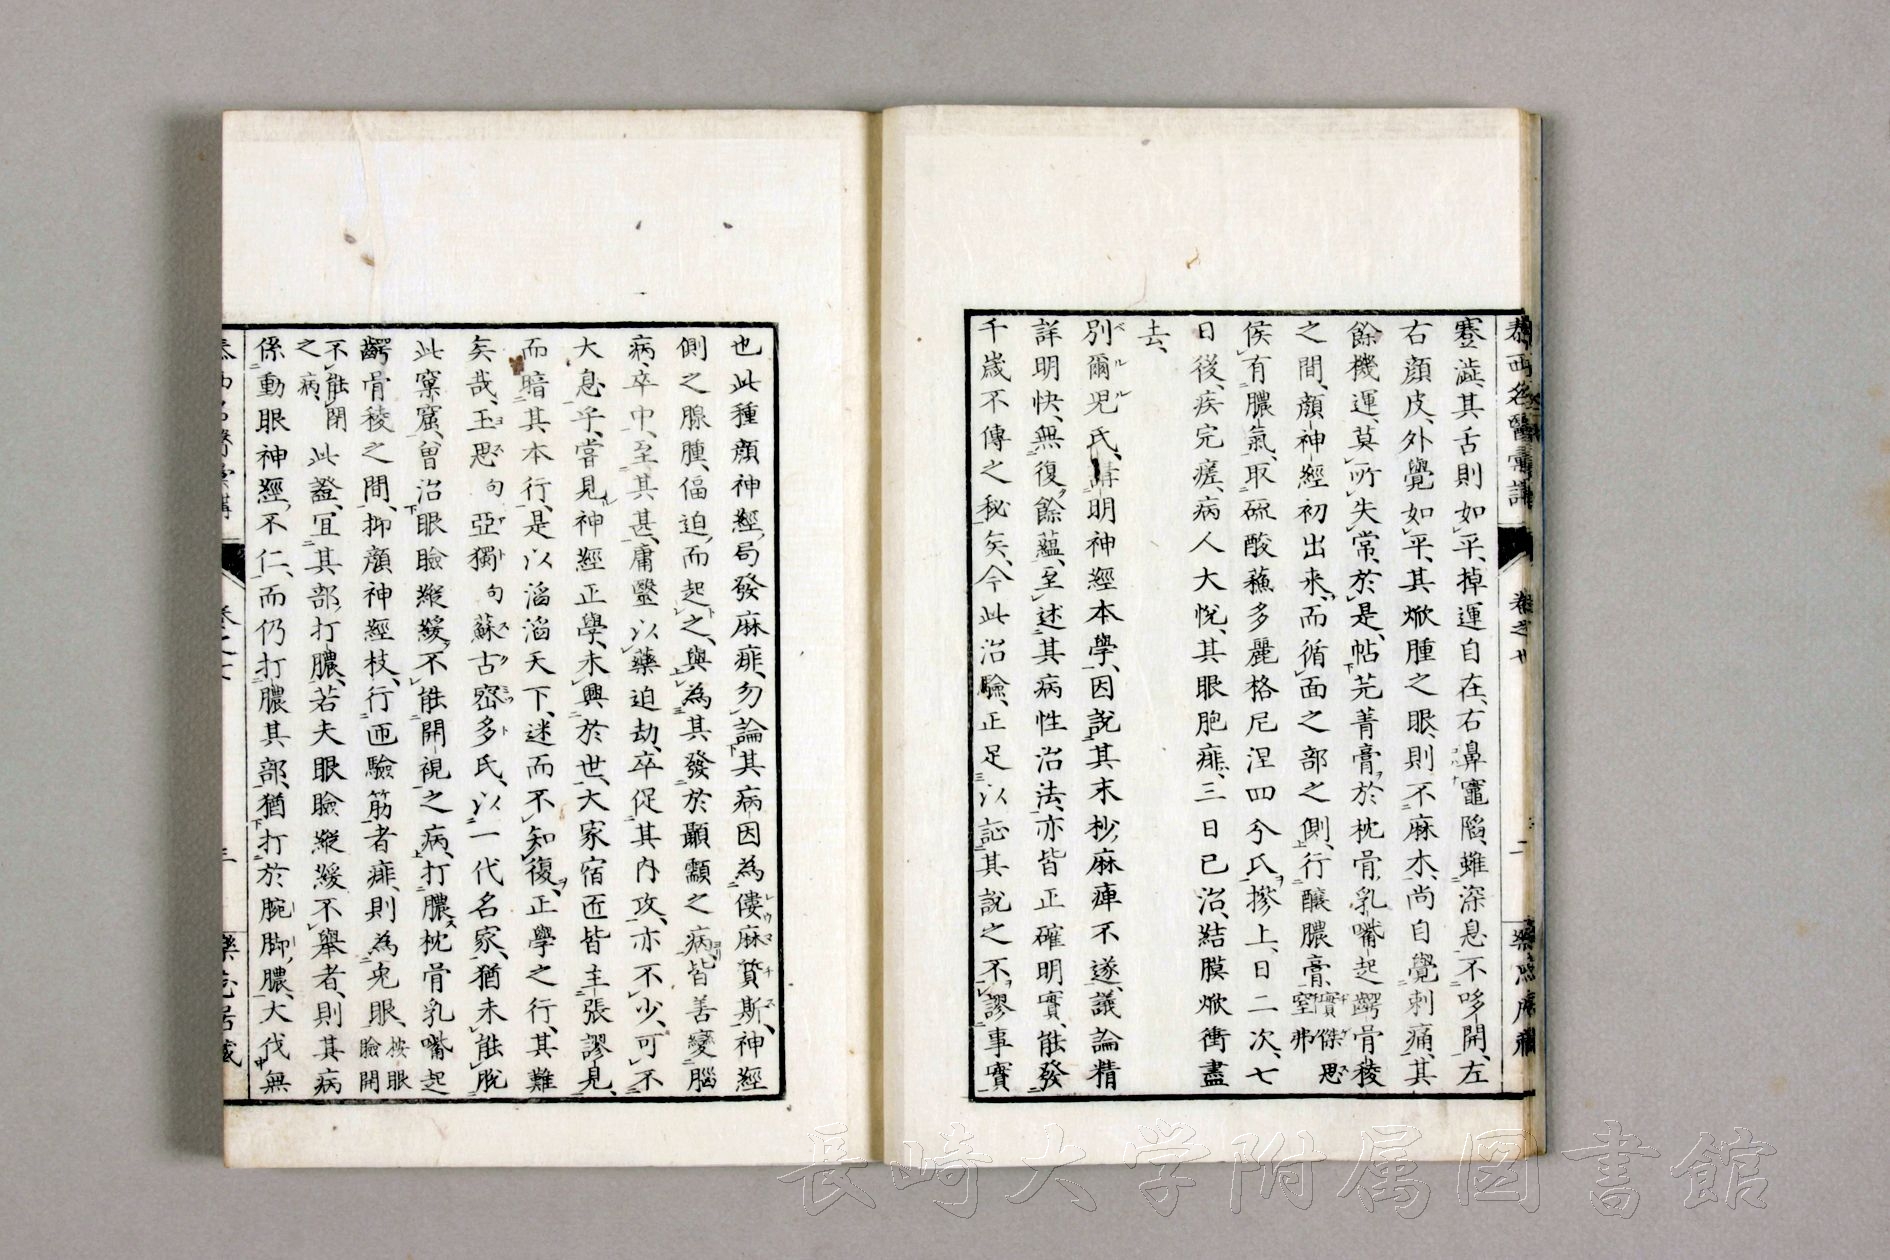 泰西名醫彙講
蹇澁、其舌則如平、掉運自在、右鼻竈陷、雖深息不哆開、左
右顔皮、外覺如平、其焮腫之眼、則不麻木、尚自覺刺痛、其
餘機運、莫所失常、於是、帖芫菁膏於枕骨乳嘴起齶骨稜
之間、顔神經初出来、而循面之部之側、行釀膿膏、實傑思窒弗
侯有膿氣、取硫酸蘓多麗格尼涅四兮氏摻上、日二次、七
日後、疾完瘥、病人大悅、其眼胞痱、三日已治、結膜焮衝盡
去、
別爾児氏、講明神經本學、因說其末杪麻痺不遂、議論精
詳明快、無復餘蘊、至述其病性治法、亦皆正確明實、能發
千歲不傳之秘矣、今此治驗、正足以証其說之不謬事實
也此種顔神經、局發麻痱、勿論其病因為僂麻質斯、神經
側之腺腫、偪迫而起之、與為其發於顳顬之病、皆善變腦
病、卒中、至其甚、庸醫以藥迫劫、卒促其内攻、亦不少、可不
大息乎、嘗見神經正學、未興於世、大家宿匠皆主張謬見、
而暗其本行、是以滔滔天下、迷而不知復、正學之行、其難
矣哉、玉思句亞獨句蘇古密多氏、以一代名家、猶未能脫
此窠窟、曾治眼瞼縱緩、不能開視之病、打膿枕骨乳嘴起
齶骨稜之間、抑顔神經枝、行匝驗筋者痱、則為兎眼、按眼瞼開
不能閉之病、此證、宜其部打膿、若夫眼瞼縱緩不舉者、則其病
係動眼神經不仁、而仍打膿其部、猶打於腕脚膿、大伐無